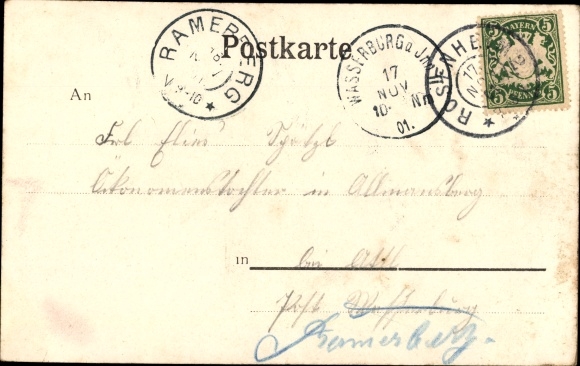 RAMERBERG
18
V 9-10
Postkarte
WASSERBURG a. JNN
17
NOV
10- Nm
01.
ROSENHEIM
17
NOV
5 BAYERN 5
5 PFENNIG 5
An
Frl Elise
Ökonomenstochter in Allmansberg
in bei Attl
Post Wasserburg
Ramerberg.